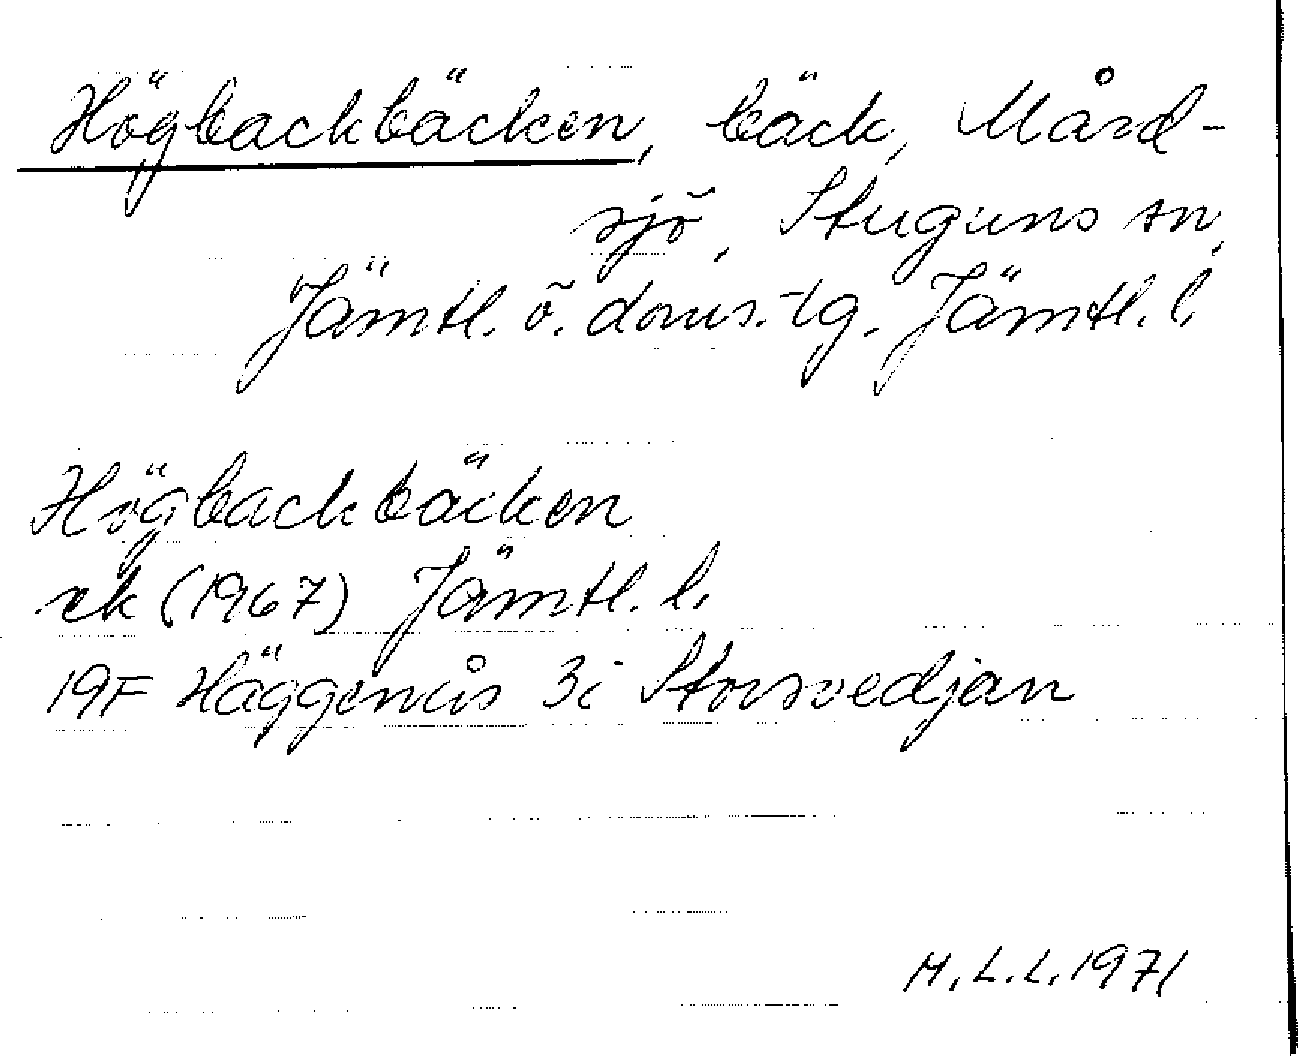 Högbackbäcken, bäck, Mård-
sjö, Stuguns sn,
Jämtl. ö. doms.-lg. Jämtl. l.
Högbackbäcken
ek (1967) Jämtl. l.
19F Häggenås 3i Storsvedjan
M.L.L. 1971